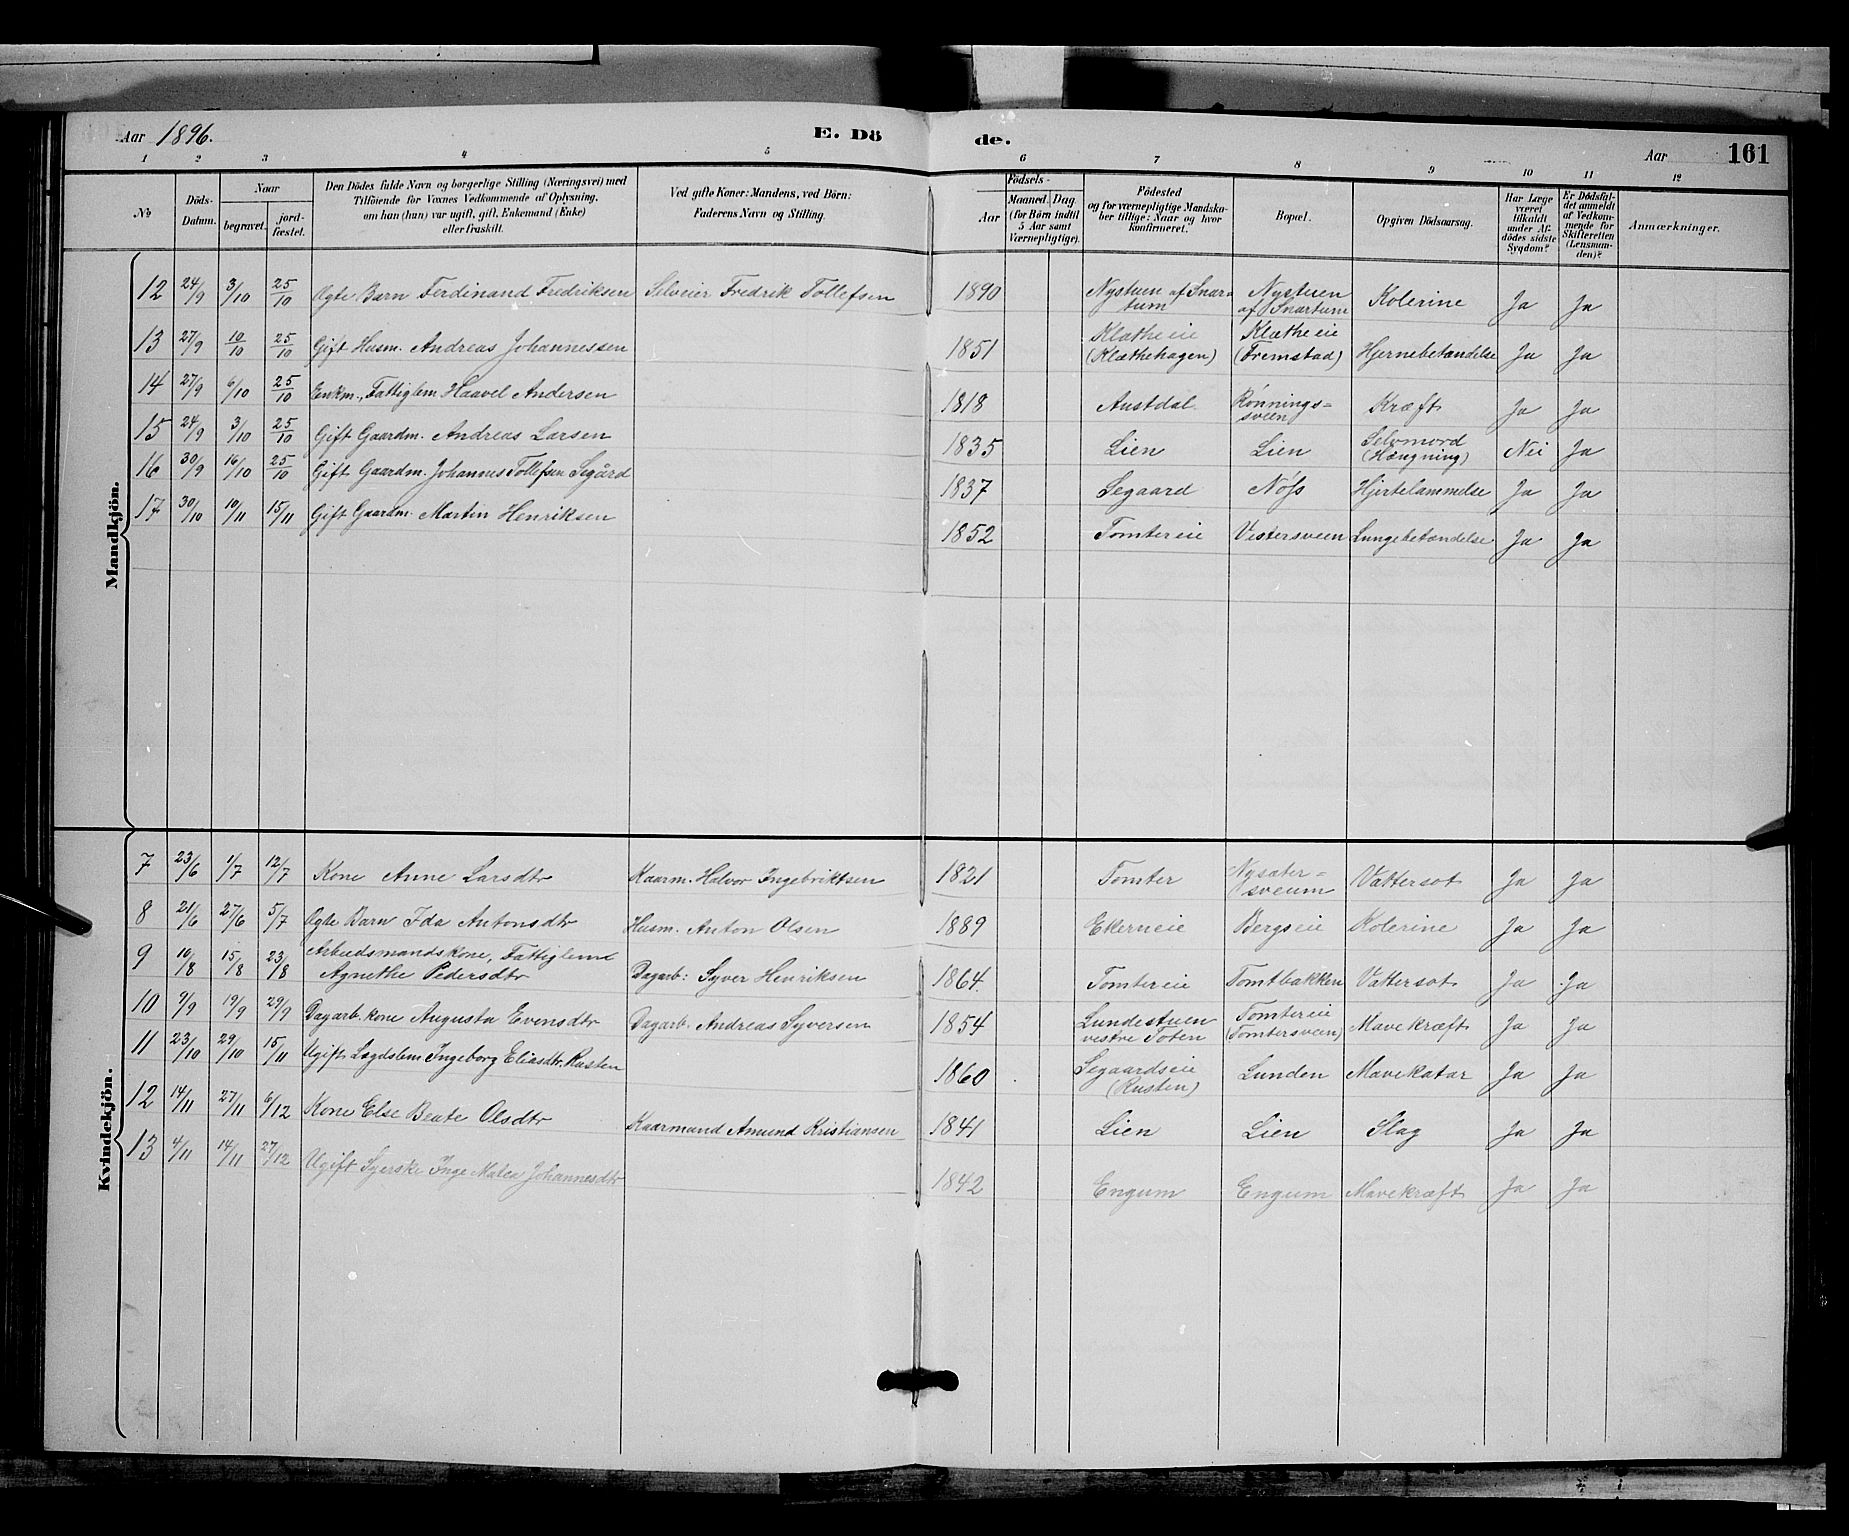 Aar 1896. E. Dö de. Aar 161
1 2 3 4 5 6 7 8 9 10 11 12
No
Döds-Datum.
Naar
begravet.
jord-fæstet.
Den Dödes fulde Navn og borgerlige Stilling (Næringsvei) med
Tilföiende for Voxnes Vedkommende af Oplysning,
om han (hun) var ugift, gift, Enkemand (Enke)
eller fraskilt.
Ved gifte Koner: Mandens, ved Börn:
Faderens Navn og Stilling.
Födsels-
Aar
Maaned. Dag.
(for Börn indtil
5 Aar samt
Værnepligtige).
Födested
og for værnepligtige Mandska-
ber tillige: Naar og hvor
konfirmeret.
Bopæl.
Opgiven Dödsaarsag.
Har Læge
været
tilkaldt
under Af-
dödes sidste
Sygdom?
Er Dödsfal-
det anmeldt
af Vedkom-
mende for
Skifteretten
(Lensman-
den)?
Anmærkninger.
Mandkjön.
12 24/9 3/10 25/10 Ægte Barn Ferdinand Fredriksen Selveier Fredrik Tollefsen 1890 Nystuen af Snartum Nystuen af Snartum Kolerine Ja Ja
13 27/9 10/10 25/10 Gift Husm. Andreas Johannessen 1851 Klætheeie (Klæthehagen) Klætheeie (Fremstad) Hjernebetændelse Ja Ja
14 27/9 6/10 25/10 Enkm., Fattiglem Haavel Andersen 1818 Austdal Rønnings=sveen Kræft Ja Ja
15 24/9 3/10 25/10 Gift Gaardm. Andreas Larsen 1835 Lien Lien Selvmord (Hængning) Nei Ja
16 30/9 16/10 25/10 Gift Gaardm. Johannes Tollefsen Segård 1837 Segaard Nøss Hjertelammelse Ja Ja
17 30/10 10/11 15/11 Gift Gaardm. Martin Henriksen 1852 Tomtereie Vestersveen Lungebetændelse Ja Ja
Kvindekjön.
7 23/6 1/7 12/7 Kone Anne Larsdtr Kaarm. Halvor Ingebriktsen 1821 Tomter Nysæter=sveum Vattersot Ja Ja
8 21/6 27/6 5/7 Ægte Barn Ida Antonsdtr Husm. Anton Olsen 1889 Ekerneie Bergseie Kolerine Ja Ja
9 10/8 15/8 23/8 Arbeidsmandskone, Fattiglem Agnethe Pedersdtr Dagarb: Syver Henriksen 1864 Tomtereie Tomtbakken Vattersot Ja Ja
10 9/9 19/9 29/9 Dagarb. kone Augusta Evensdtr Dagarb. Andreas Syversen 1854 Lundestuen vestre Toten Tomtereie (Tomtersveen) Mavekræft Ja Ja
11 23/10 29/10 15/11 Ugift Lægdslem Ingeborg Eliasdtr. Rusten 1860 Segaardseie (Rusten) Lunden Mavekatar Ja Ja
12 14/11 27/11 6/12 Kone Else Beate Olsdtr Kaarmand Amund Kristiansen 1841 Lien Lien Slag Ja Ja
13 4/11 14/11 27/12 Ugift Syerske Inge Malea Johannesdtr 1842 Engum Engum Mavekræft Ja Ja